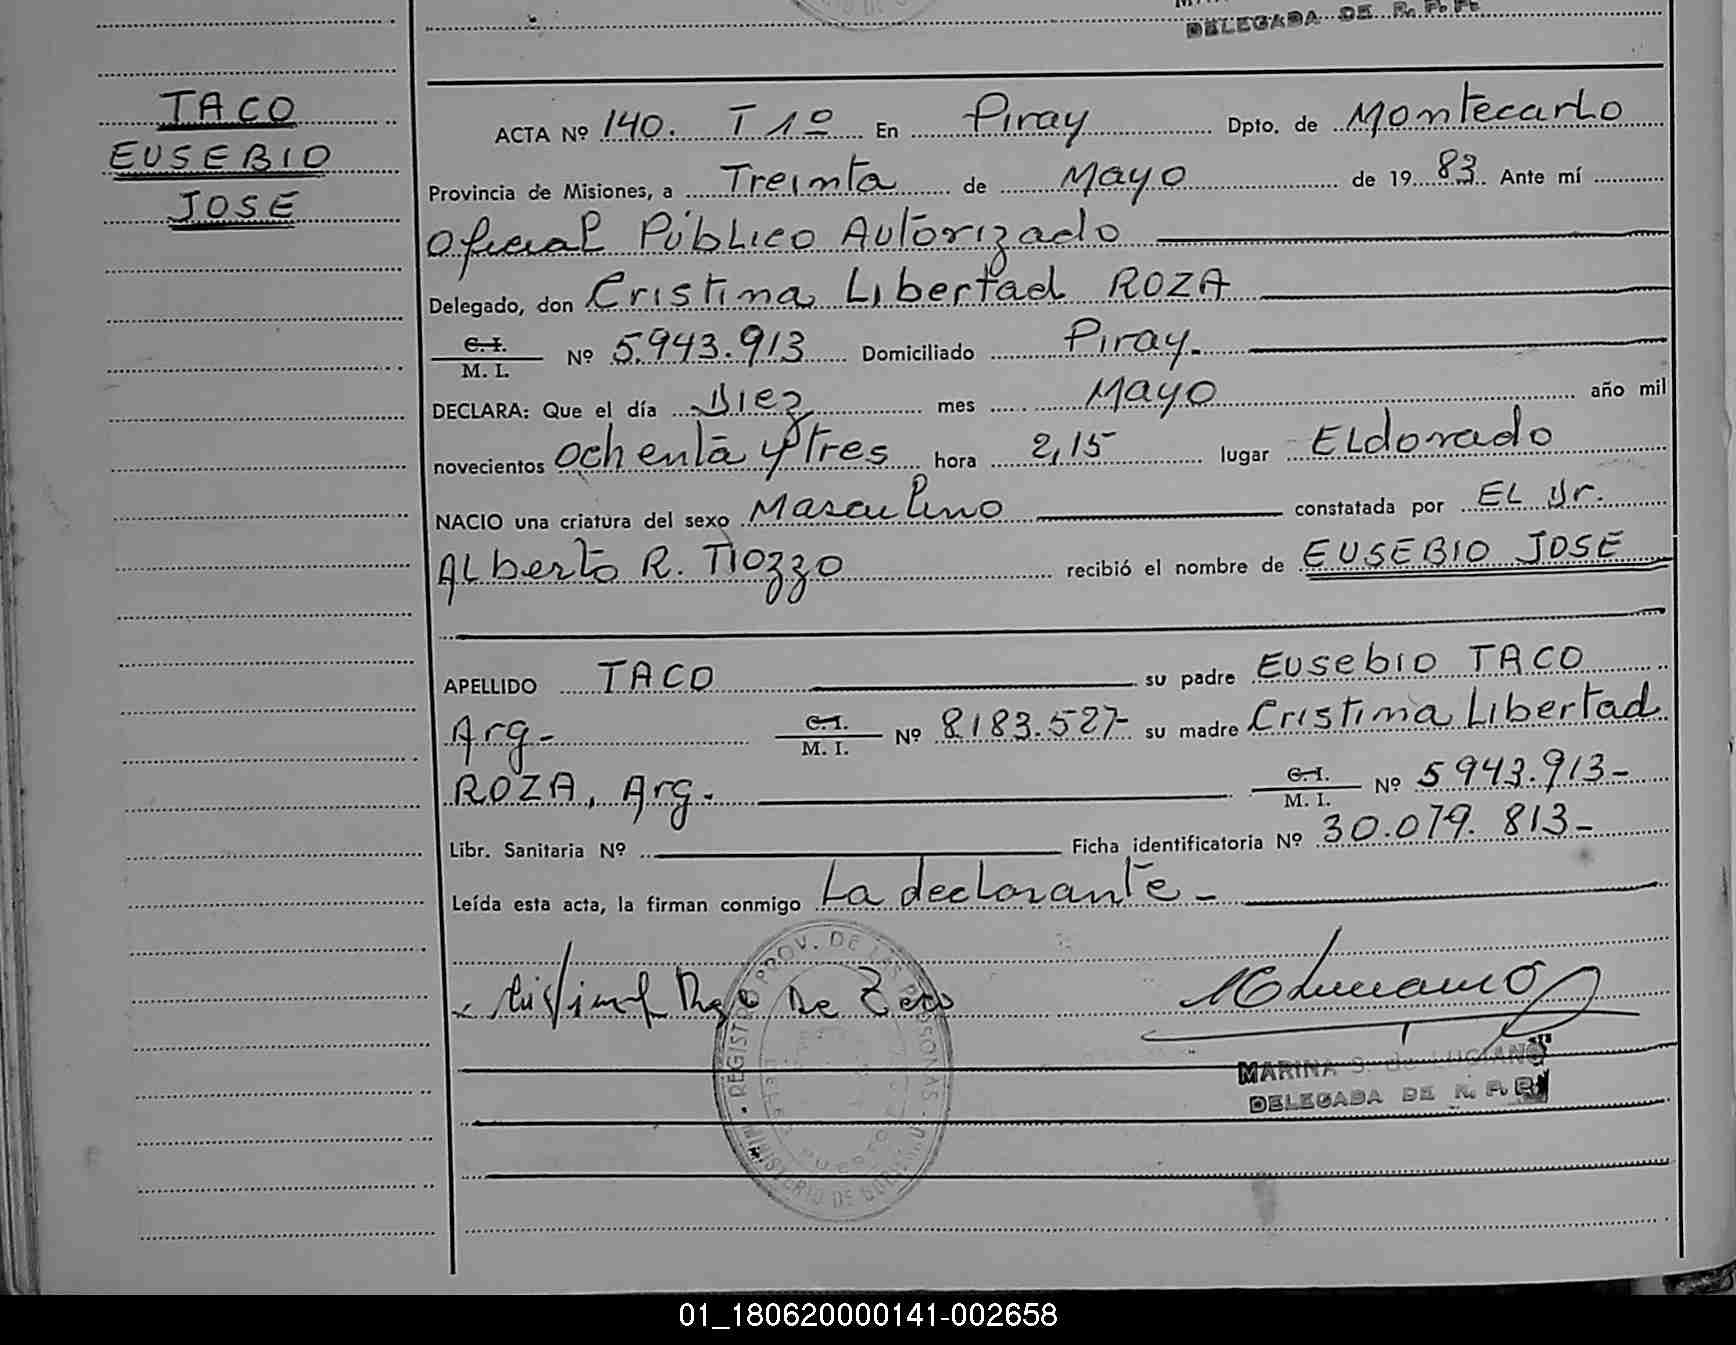 DELEGADA DE R. P. P.
TACO
EUSEBIO
JOSE
ACTA Nº 140. T 1º En Piray Dpto. de Montecarlo
Provincia de Misiones, a Treinta de Mayo de 19 83. Ante mí
Oficial Público Autorizado
Delegado, don Cristina Libertad ROZA
C. I.
M. I. Nº 5.943.913 Domiciliado Piray.
DECLARA: Que el día Diez mes Mayo año mil
novecientos ochenta y tres hora 2,15 lugar ELdorado
NACIO una criatura del sexo Masculino constatada por EL Dr.
ALberto R. TIOZZO recibió el nombre de EUSEBIO JOSE
APELLIDO TACO su padre Eusebio TACO
Arg- C. I.
M. I. Nº 8183.527- su madre Cristina Libertad
ROZA, Arg. C. I.
M. I. Nº 5943.913-
Libr. Sanitaria Nº Ficha identificatoria Nº 30.079.813-
Leída esta acta, la firman conmigo La declarante-
REGISTRO PROV. DE LAS PERSONAS
MINISTERIO DE
PUERTO
MARINA S. de LUCIANO
DELEGADA DE R. P. P.
01_180620000141-002658